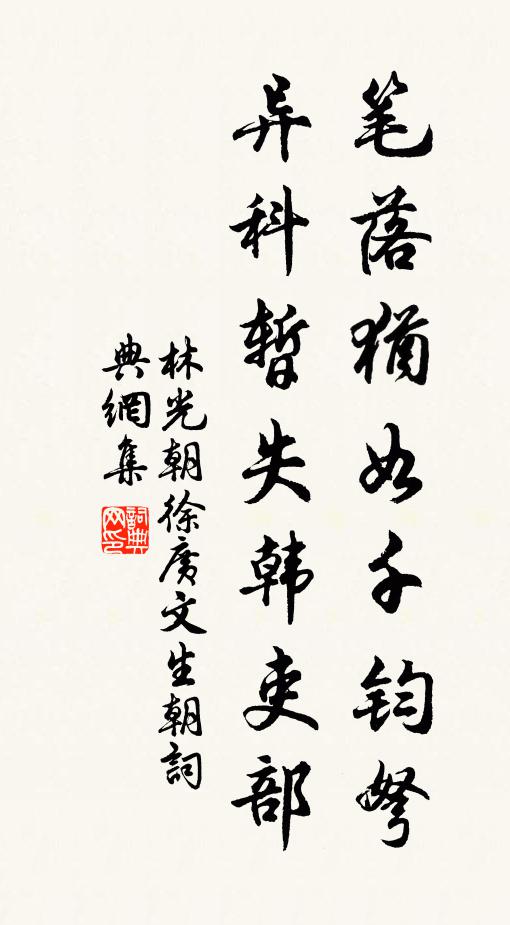 笔落犹如千钧弩
异科暂失韩吏部
林光朝徐广文生朝詞
典網集
詞典網印